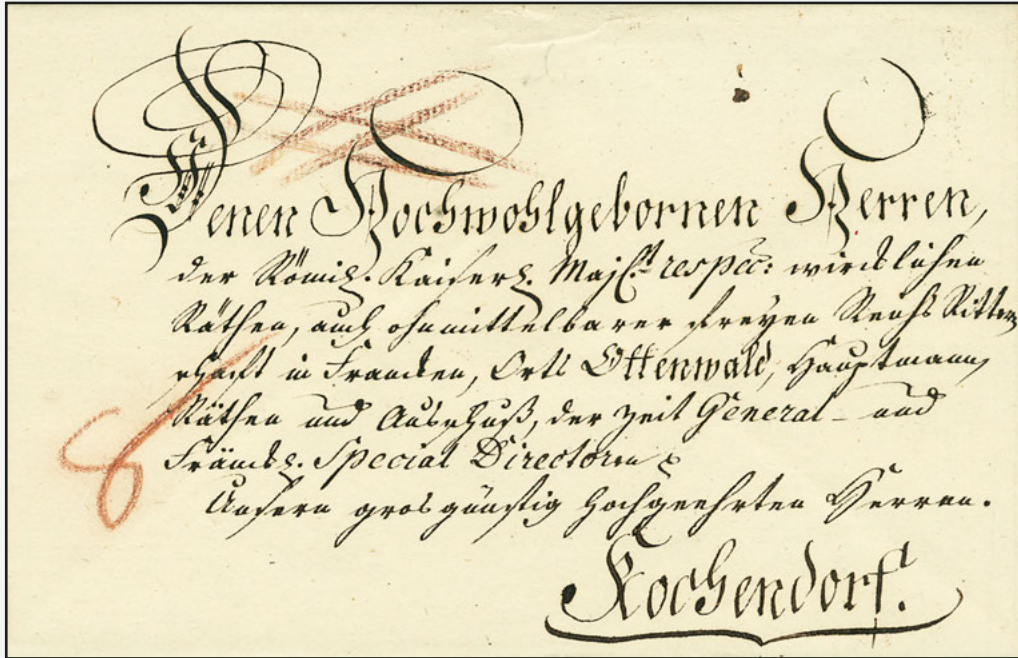 Denen Hochwohlgebornen Herren,
der Römisch. Kaiserl. Majst. respec: würcklichen
Räthen, auch ohnmittelbarer freyen Reichs Ritter
schafft in Francken, Orts Ottenwald, Hauptmann,
Räthen und Ausschuß, der Zeit General- und
Fränckl. Special Directoren
Unsern grosgünstig Hochgeehrten Herren.
Kochendorf.